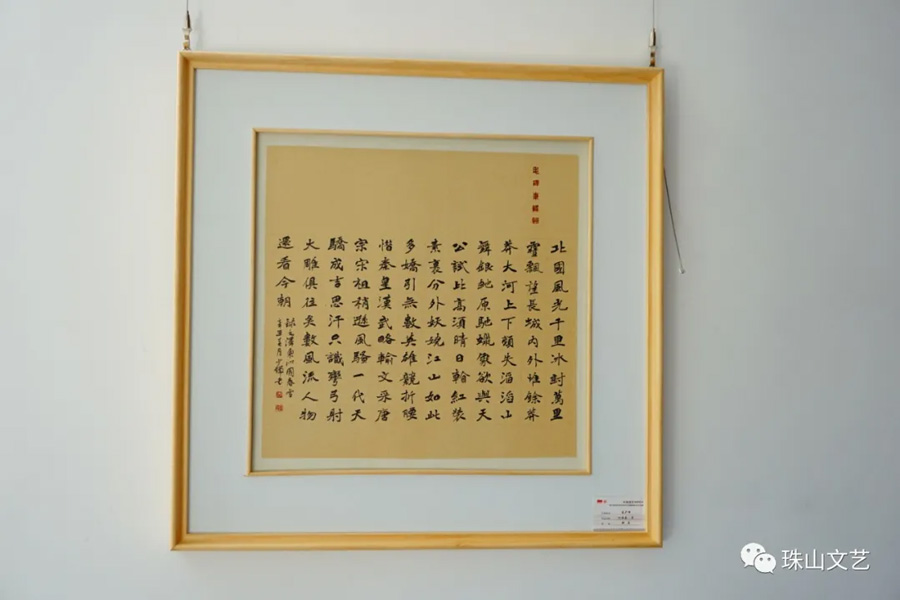 北國風光千里冰封萬里
雪飄望長城内外惟餘莽
莽大河上下頓失滔滔山
舞銀蛇原馳蠟象欲與天
公試比高須晴日看紅裝
素裹分外妖嬈江山如此
多嬌引無數英雄競折腰
惜秦皇漢武略輸文采唐
宗宋祖稍遜風騷一代天
驕成吉思汗只識彎弓射
大雕俱往矣數風流人物
還看今朝
錄毛澤東沁園春雪
珠山文艺